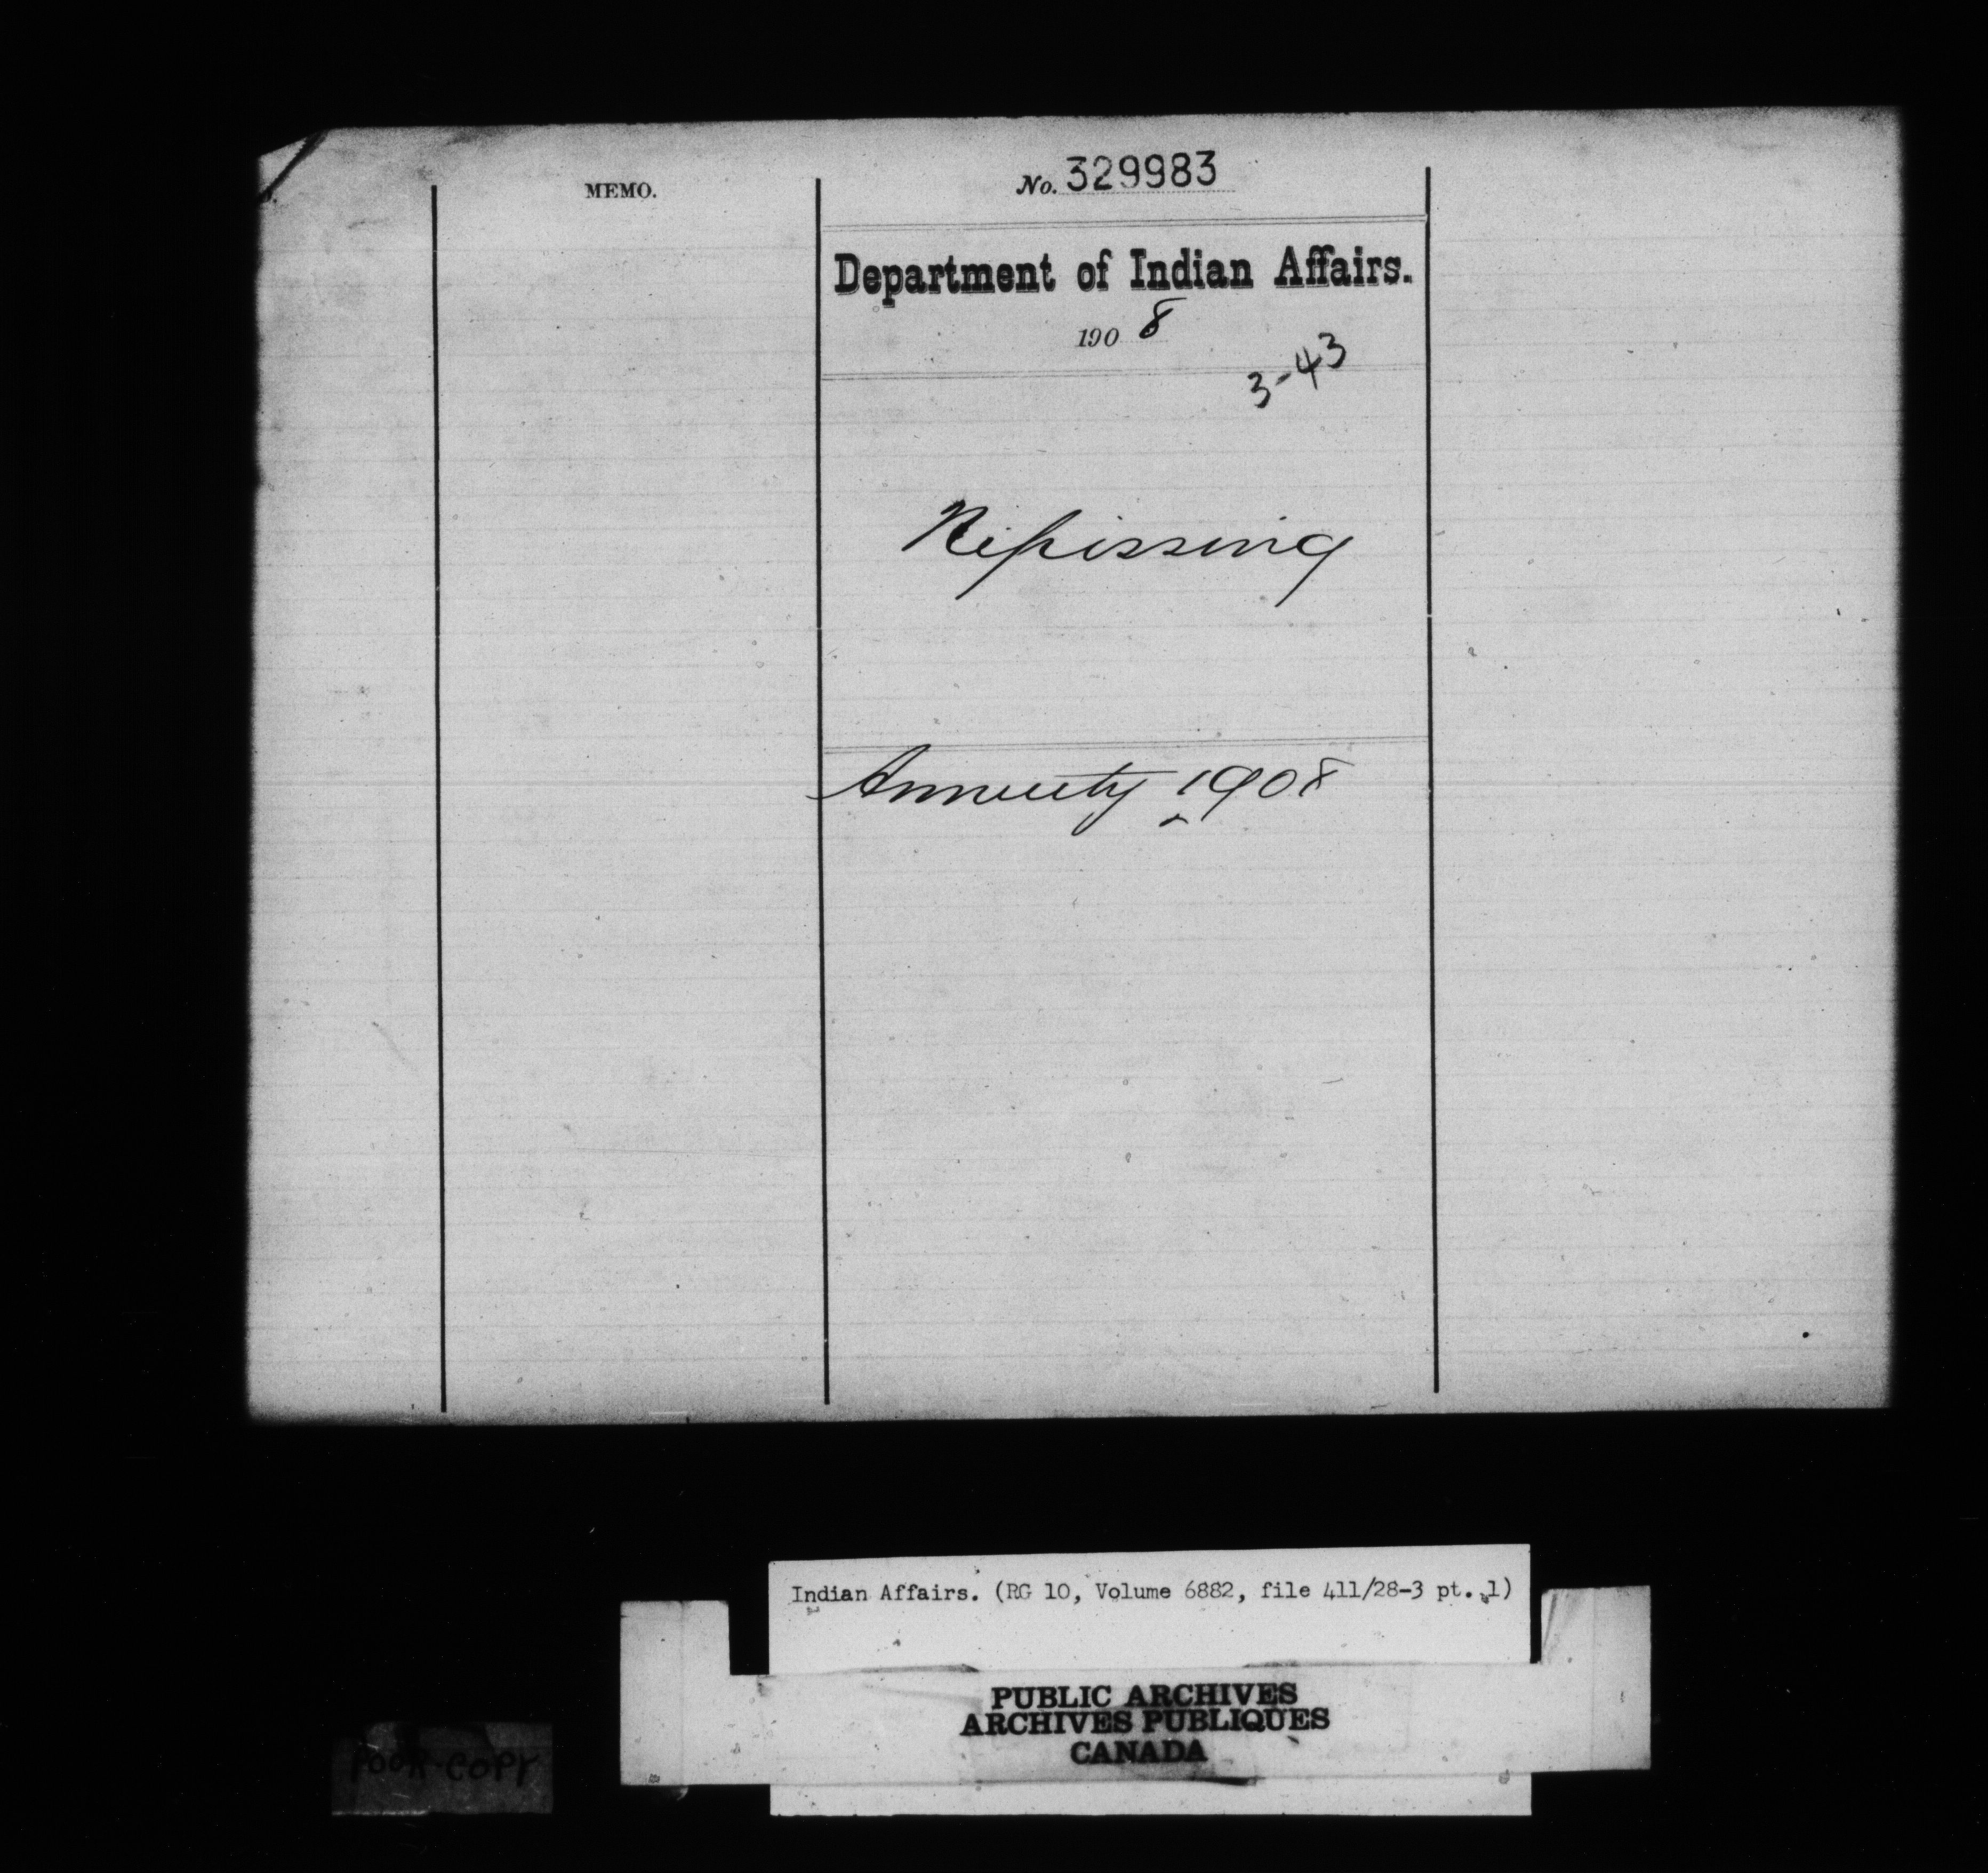 MEMO.
No. 329983
Department of Indian Affairs.
1908
3-43
Nipissing
Annuity 1908
Indian Affairs. (RG 10, Volume 6882, file 411/28-3 pt. 1)
PUBLIC ARCHIVES
ARCHIVES PUBLIQUES
CANADA
POOR COPY